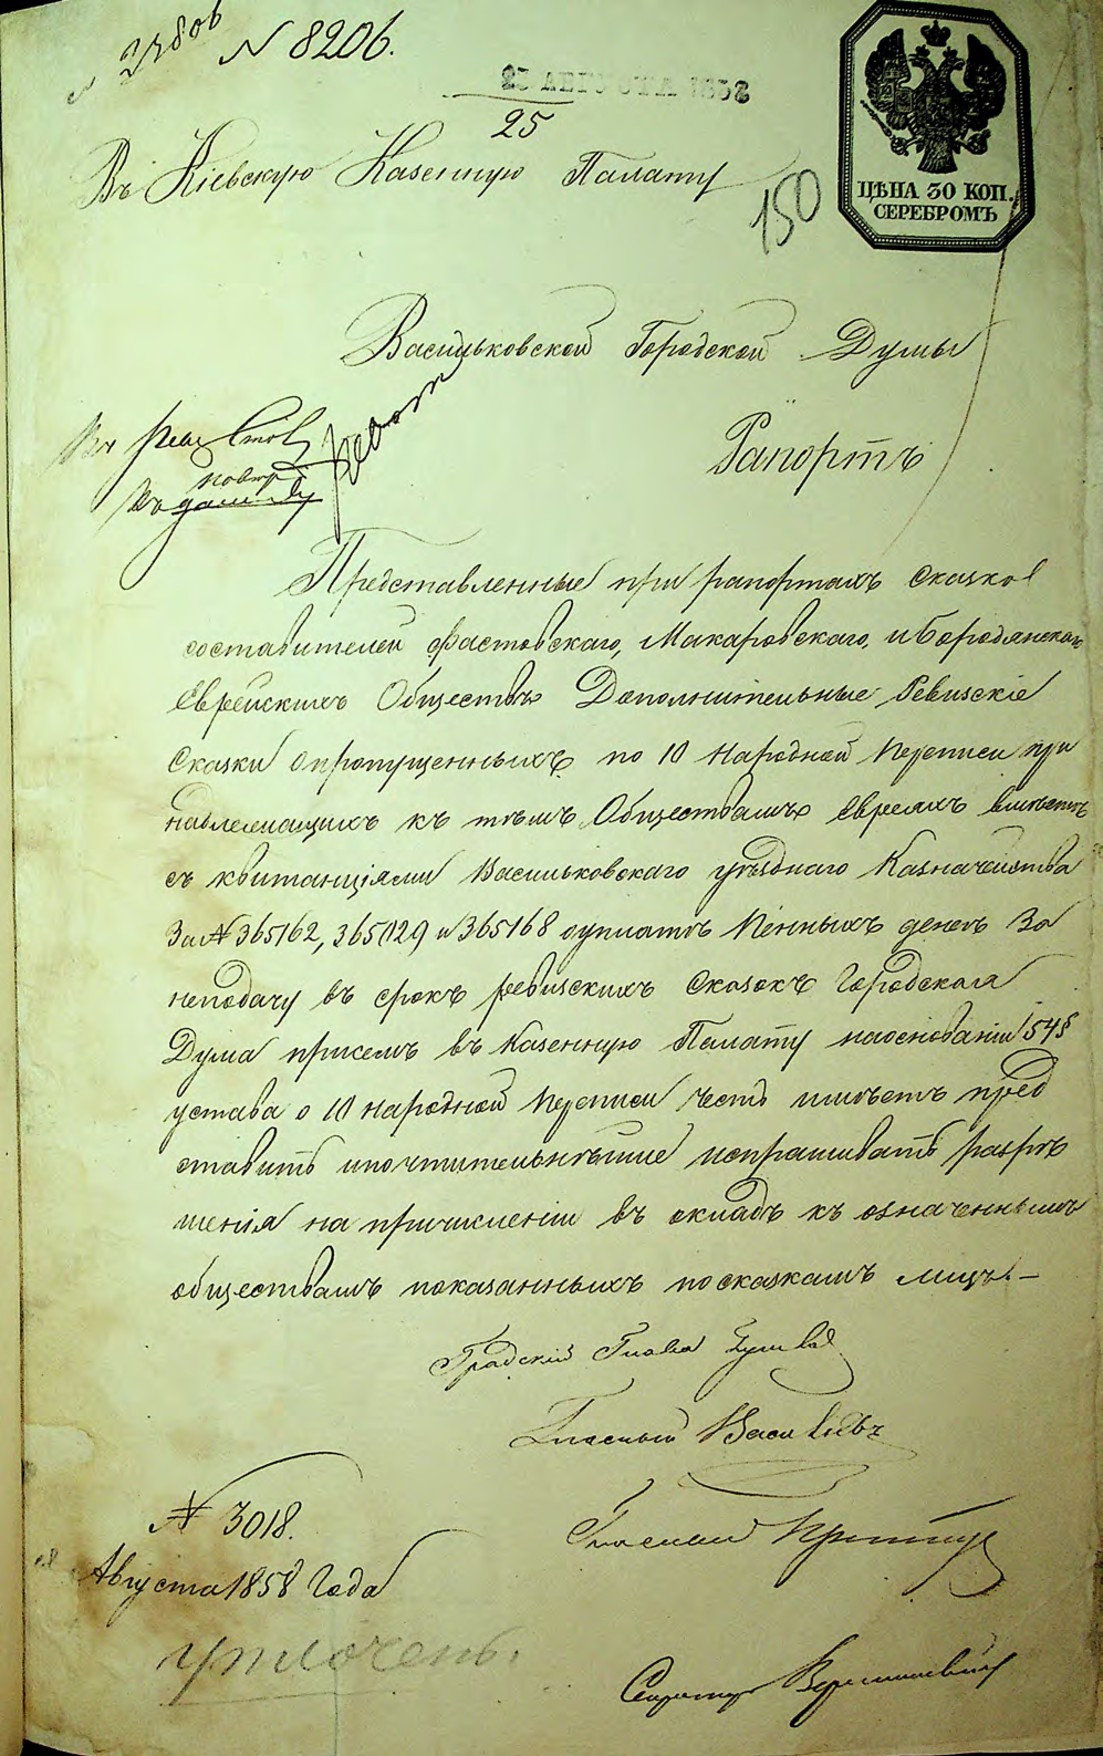 N 8206.
25 АВГУСТА 1858
25
Въ Кіевскую Казенную Палату
150
ЦѢНА 30 КОП.
СЕРЕБРОМЪ
Васильковской Городской Думы
Рапортъ
Представленные при рапортахъ сказко
составителей Фастовскаго, Макаровскаго, и Бородянскаго
Еврейскихъ Обществъ Дополнительные Ревизскіе
Сказки опропущенныхъ по 10 Народной Переписи при
надлежащихъ къ тѣмъ Обществамъ Евреяхъ вмѣстѣ
съ квитанціями Васильковскаго уѣзднаго Казначейства
За N 365162, 365129 и 365168 оуплатѣ Пѣнныхъ денегъ За
неподачу въ срокъ ревизскихъ Сказокъ Городская
Дума присемъ въ Казенную Палату наоснованіи 54 §
устава о 10 народной Переписи Честь имѣетъ пред
ставить ипочтительнѣйше испрашивать разрѣ
шенія на причисленіи въ окладъ къ означеннымъ
обществамъ показанныхъ посказкамъ лицъ. –
Градскій Глава
Гласный Васильевъ
N 3018.
Гласный
Августа 1858 Года
Секретарь